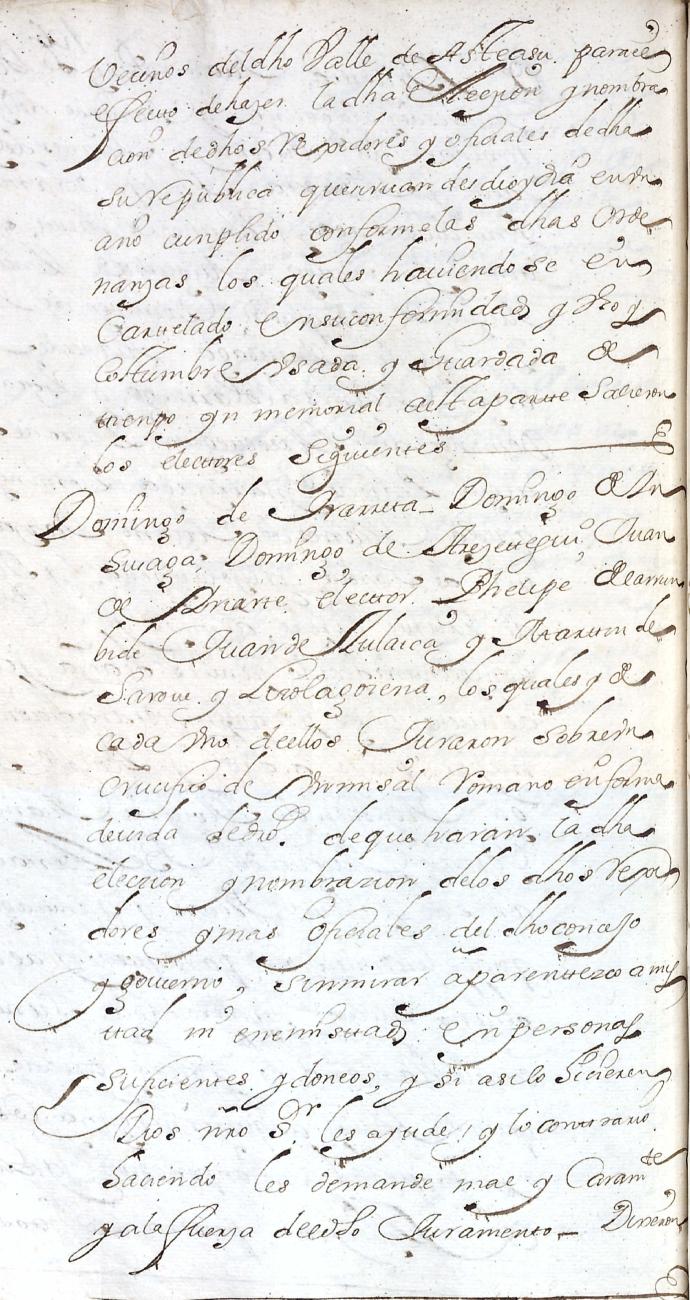 Vecinos del dho Valle de Asteasu. para el
efecto de hazer la dha Eleccion y nombra
cion de dhos Regidores y oficiales de dha
su republica que sirvan desde oy dia en un
año cunplido conforme las dhas Orde
nanzas, los quales haviendose en
Cantelado en su conformidad y Uso y
Costumbre Usada y Guardada de
tienpo yn memorial a esta parte Salieron
los electores Siguientes
Domingo de Yrarreta - Domingo de In
suiaga, Domingo de Arezeteguiº, Juan
de Uriarte elector Phelipe de arrum
bide Juan de Zulaica y Martin de
Sarove y Lerolagoiena, los quales y de
cada uno de ellos Juraron Sobre un
Crucifixo de un misal Romano en forma
devida de dro. de que haran la dha
eleccion y nombrazion de los dhos Regi
dores y mas oficiales del dho concejo
y govierno, sin mirar a parentezco amis
tad ni enemistad, en personas
suficientes ydoneos, y si asi lo hicieren
Dios nro Sr. les ayude, y lo contrario
haciendo les demande mal y Caramte
y a la fuerza de edho Juramento - Dixeron